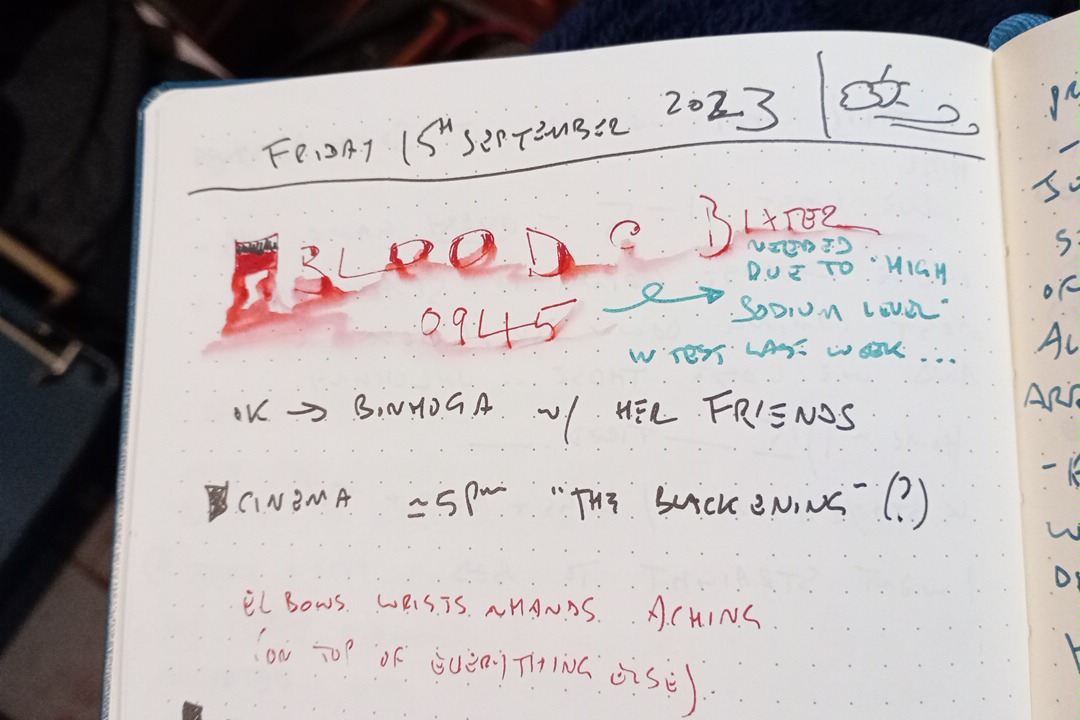 FRIDAY 15TH SEPTEMBER 2023
BLOOD @ BIXTER
NEEDED
DUE TO "HIGH
0945
SODIUM LEVEL"
IN TEST LAST WEEK ...
K → BONHOGA W/ HER FRIENDS
CINEMA ≃5PM "THE BLACKENING" (?)
ELBOWS WRISTS HANDS ACHING
(ON TOP OF EVERYTHING ELSE).